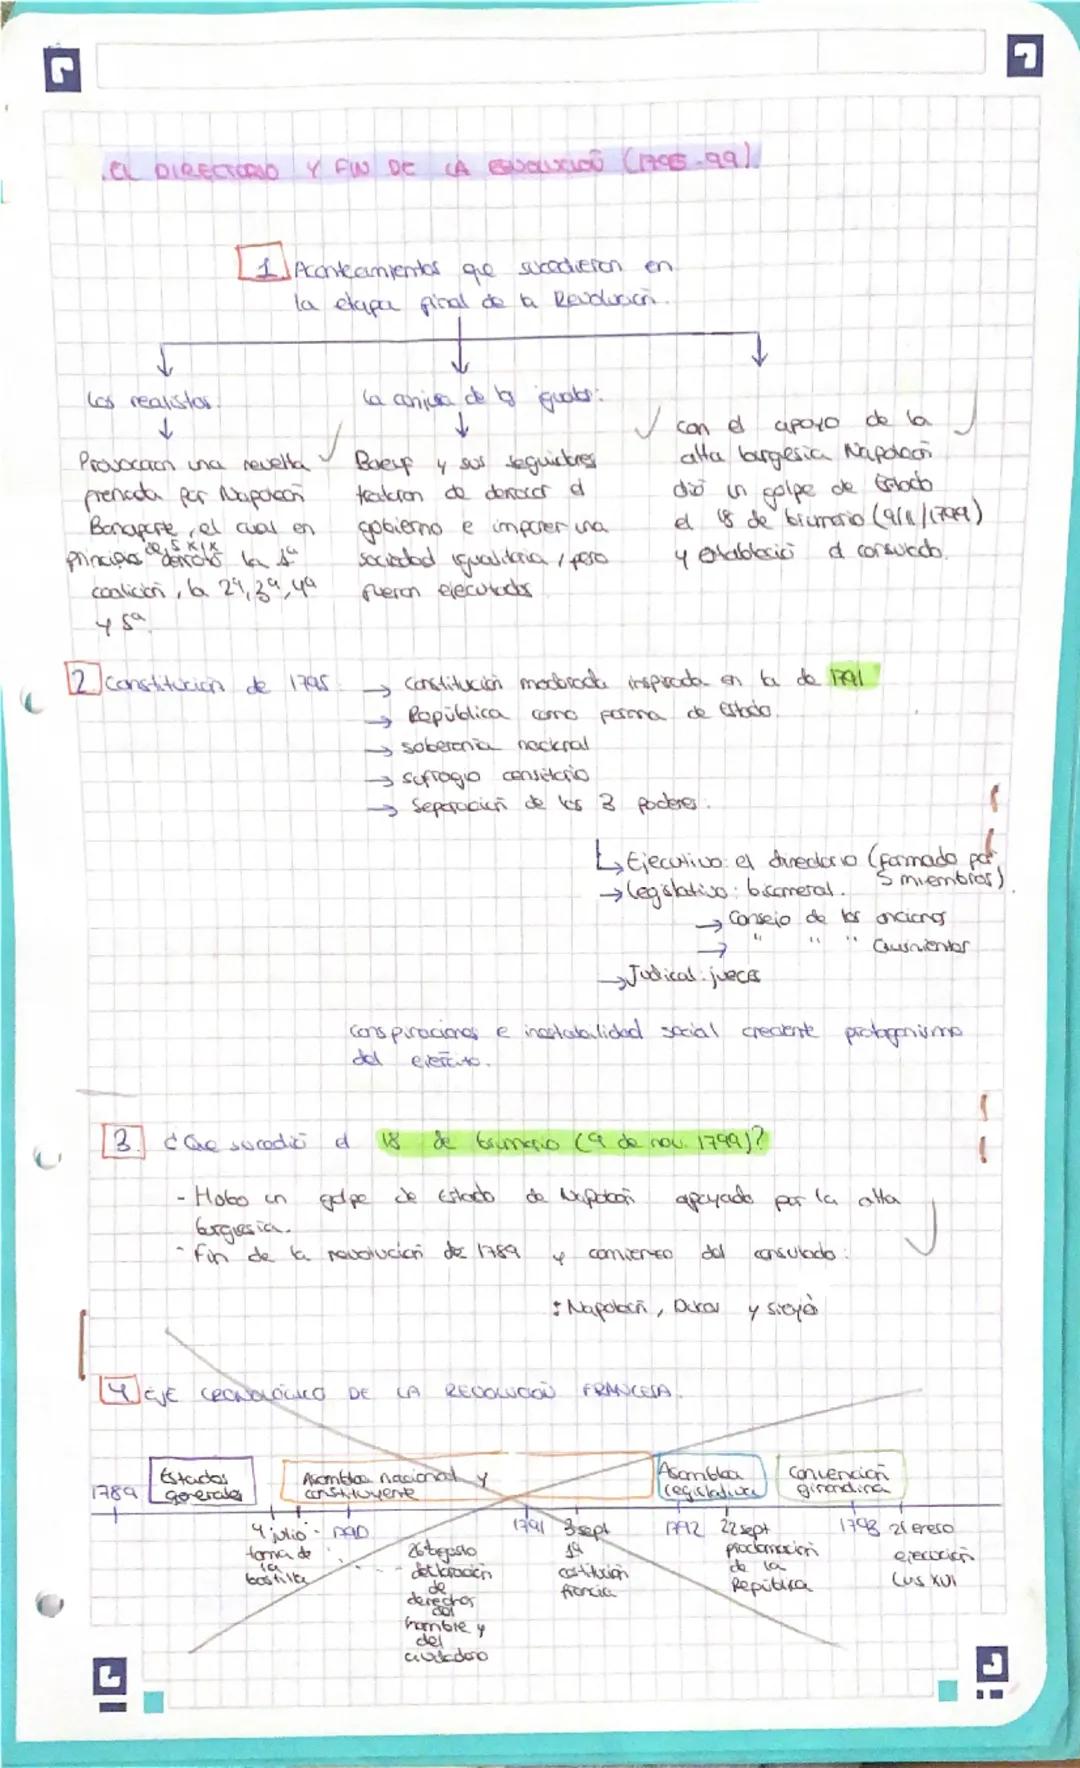 EL DIRECTORIO Y FIN DE LA REVOLUCIÓN (1795-99).
1. Acontecimientos que sucedieron en
la etapa final de la Revolución.
Los realistas.
Provocaron una revuelta
frenada por Napoleón
Bonaparte, el cual en
principios del S XIX derrotó la 1ª
coalición, la 2ª, 3ª, 4ª
y 5ª
La conjura de los iguales:
Baeuf y sus seguidores
trataron de derrocar el
gobierno e imponer una
sociedad igualitaria, pero
fueron ejecutados
con el apoyo de la
alta burgesía Napoleón
dió un golpe de Estado
el 18 de brumario (9/11/1799)
y estableció el consulado.
2. Constitución de 1795:
→ Constitución moderada inspirada en la de 1791
→ República como forma de Estado.
→ soberanía nacional
→ sufragio censitario
→ Separación de los 3 poderes:
→ Ejecutivo: el directorio (formado por
5 miembros)
→ Legislativo: bicameral.
→ Consejo de los ancianos
→ " " " Quinientos
→ Judicial: jueces
conspiraciones e inestabilidad social creciente protagonismo
del ejército.
3. ¿Que sucedió el 18 de brumario (9 de nov. 1799)?
- Hobo un golpe de Estado de Napoleón apoyado por la alta
burguesía.
- Fin de la revolución de 1789 y comienzo del consulado:
: Napoleón, Ducos y Sieyè
4. EJE CRONOLÓGICO DE LA REVOLUCIÓN FRANCESA.
1789
Estados
generales
Asamblea nacional y
constituyente
Asamblea
legislativa
Convención
girondina
4 julio
toma de
la
bastilla
1790
26 agosto
declaración
de
derechos
del
hombre y
del
ciudadano
1791
3 sept
1ª
costitución
francia
1792
22 sept
proclamación
de la
República
1793
21 enero
ejecución
Luis XVI